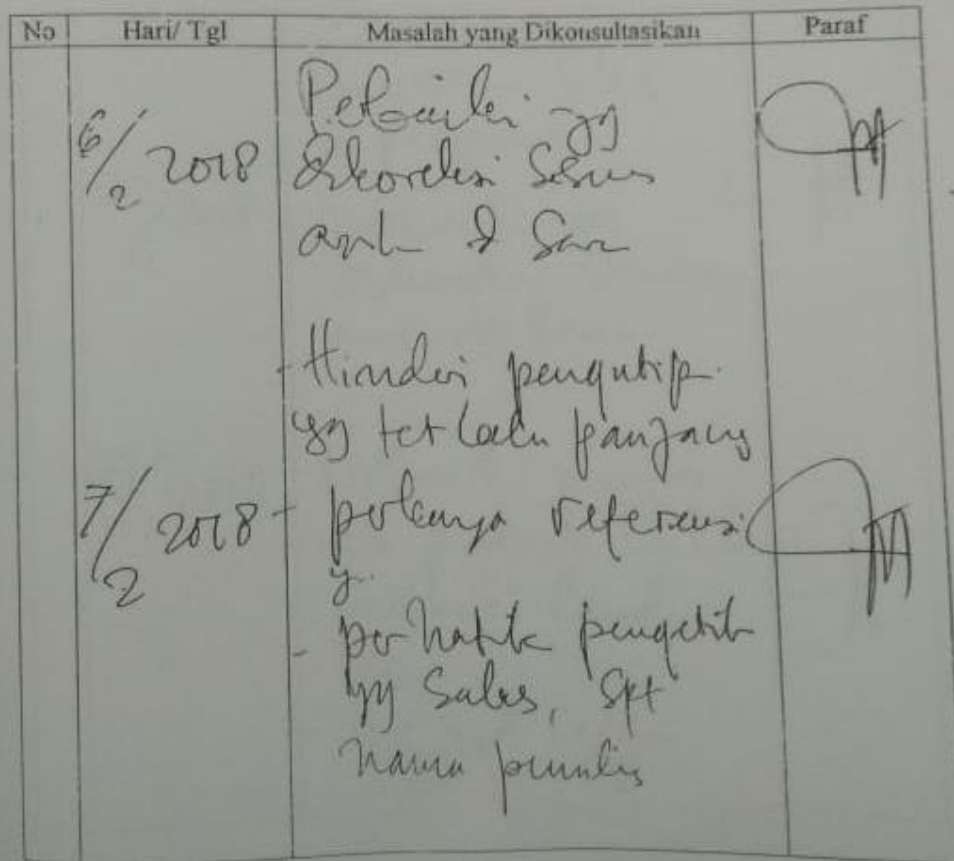 No Hari/ Tgl Masalah yang Dikonsultasikan Paraf
6/2 2018
Perbaiki yg
dikoreksi sesuai
arah & saran
- Hindari pengutip
yg terlalu panjang
7/2 2018
- perkaya referensi
- perhatik pengetik
yg salas, spt
nama penulis